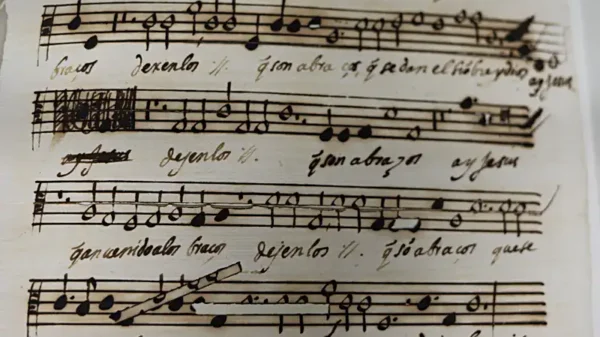 braços dexenlos :// q̃ son abraços q̃ se dan el hõbre y dios ay Jesus
ay Jesus dejenlos :// q̃ son abraços ay Jesus
q̃ an venido a los braços dejenlos :// q̃ sõ abraços que se